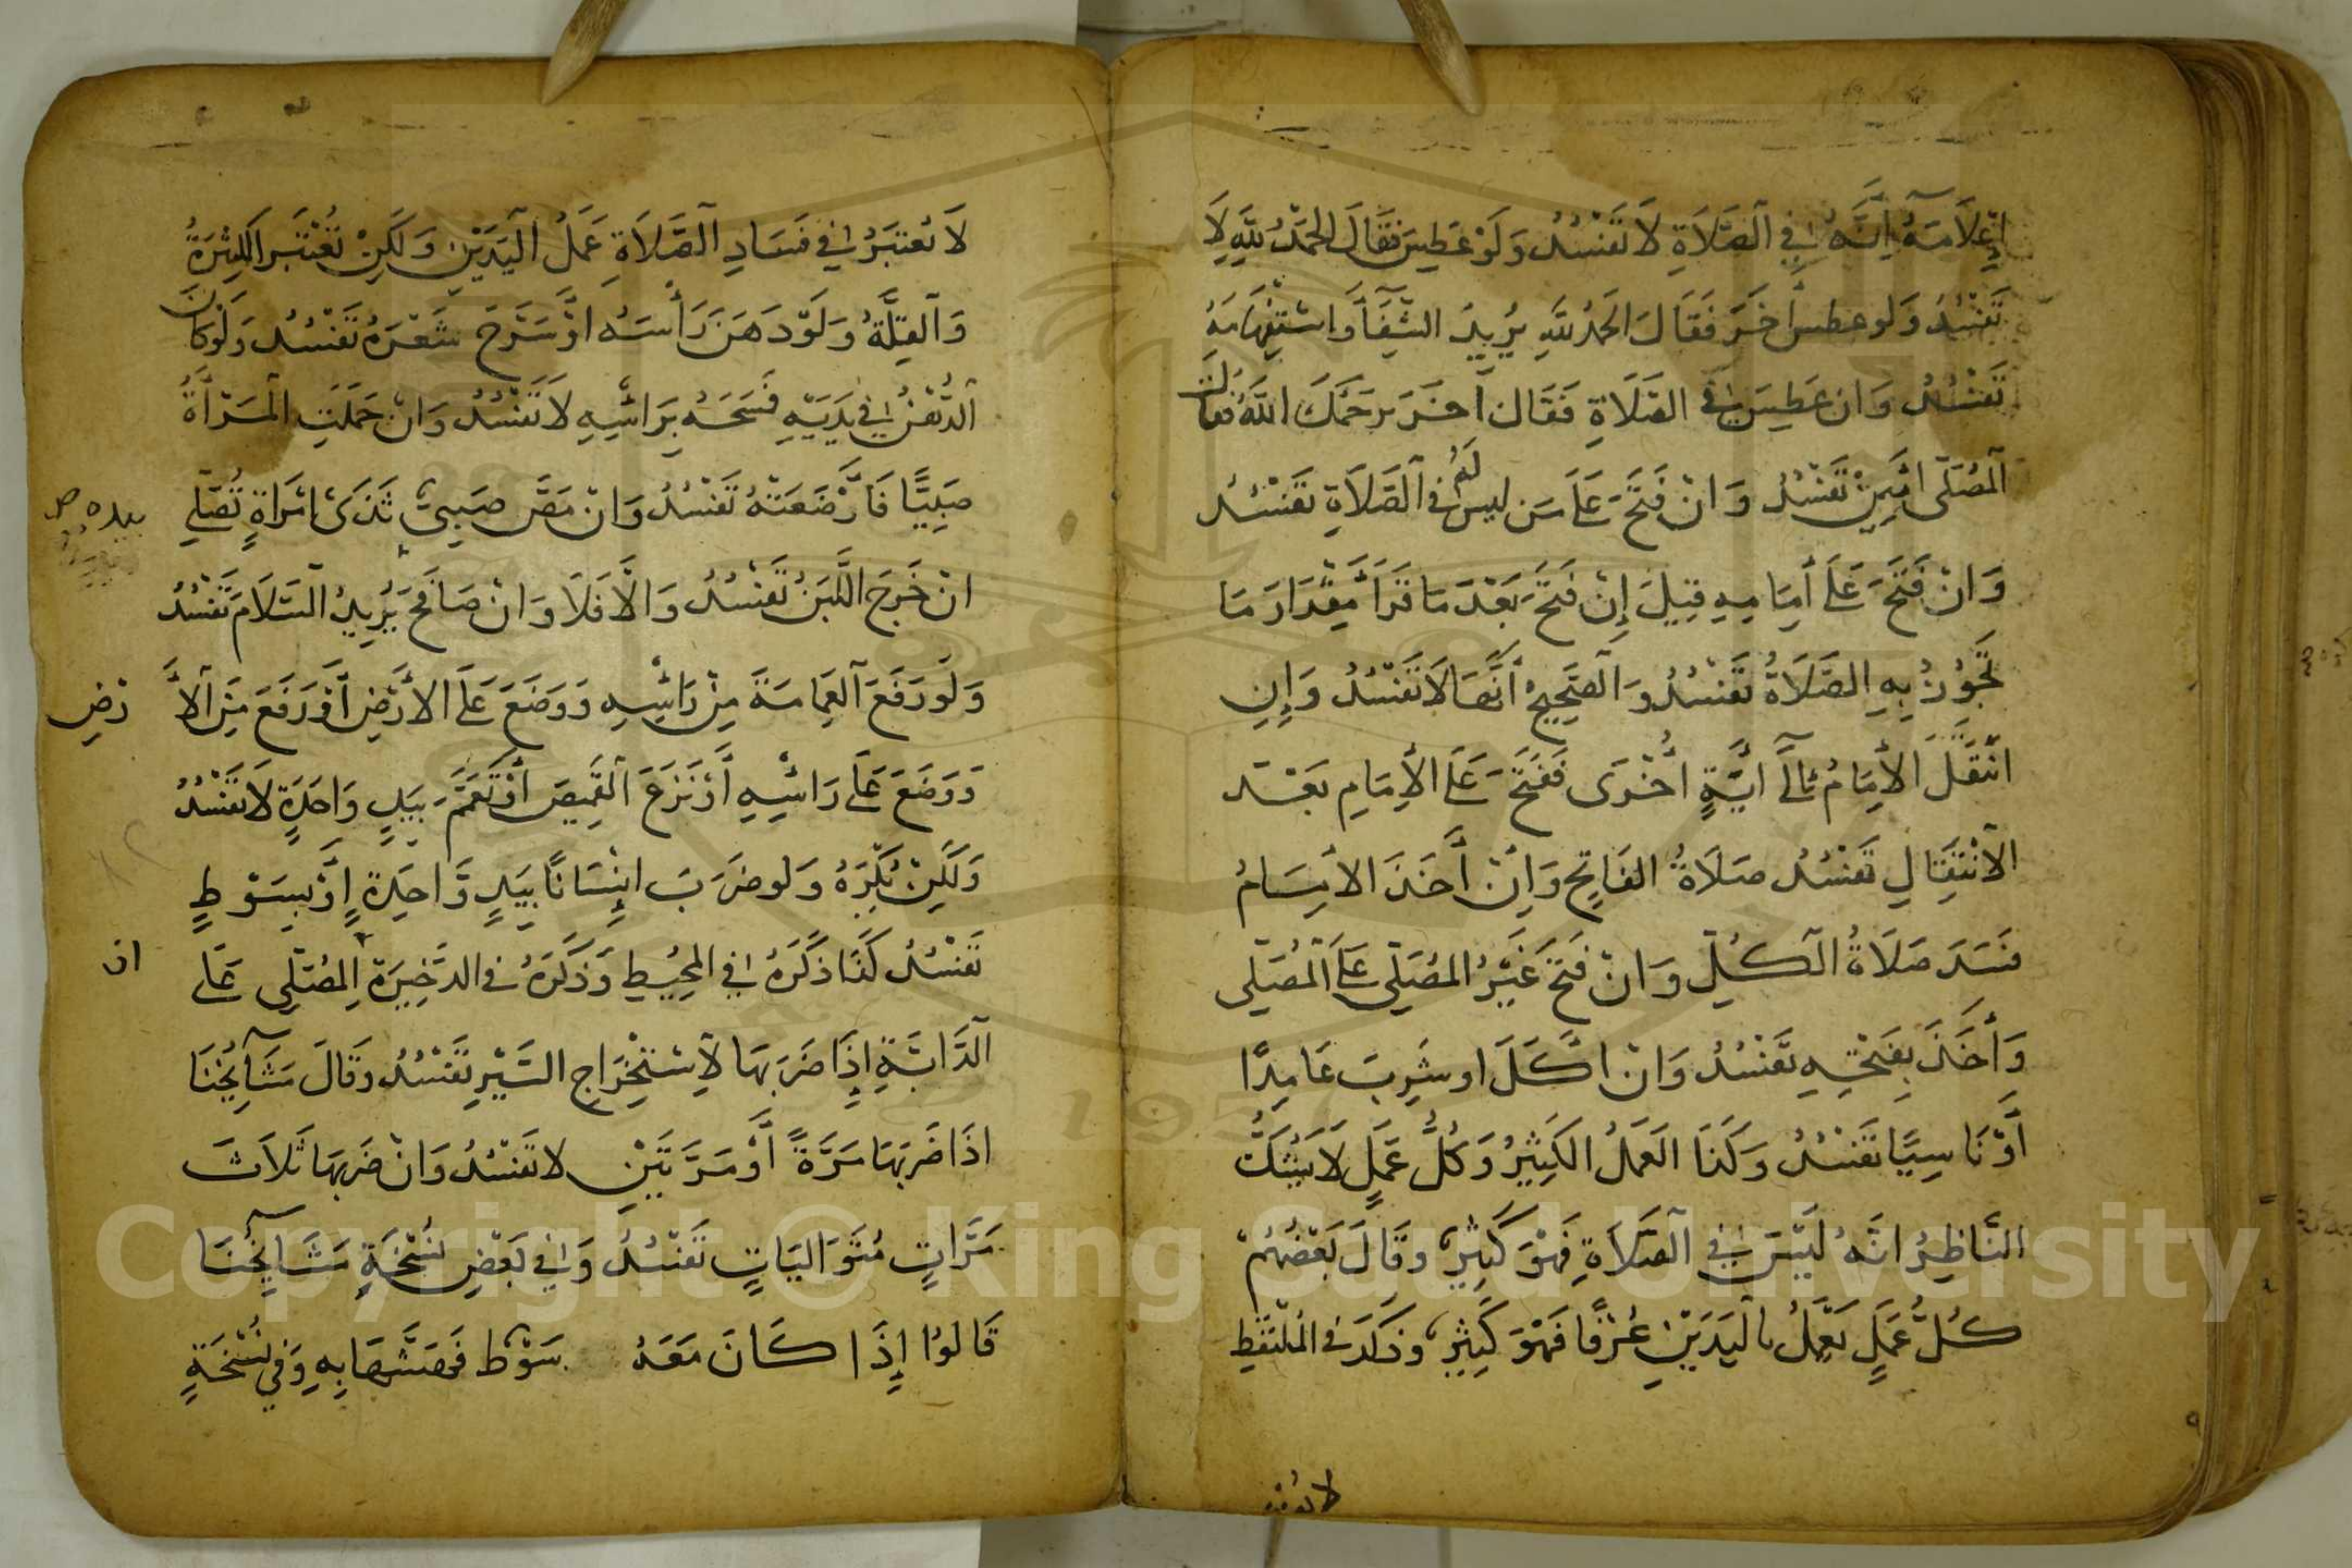 إِعْلَامَهُ أَنَّهُ فِي الصَّلَاةِ لَا تَفْسُدُ وَلَوْ عَطِسَ فَقَالَ الْحَمْدُ لِلَّهِ لَا
تَفْسُدُ وَلَو عطس آخَرَ فَقَالَ الحَمْدُ للهِ يُرِيدُ الشِّفَآءَ وَاسْتِفْهَامَهُ
تَفْسُدُ وَان عَطِسَ فِي الصَّلَاةِ فَقَال آخَرَ يرحَمُكَ اللَّهُ فَقَالَ
الْمُصَلِّي امِّينْ تَفْسُدُ وَانْ فَتَحَ عَلَى مَن ليس لَهُ فِي الصَّلَاةِ تَفْسُدُ
وَانْ فَتَحَ عَلَى أمَامِهِ قِيلَ إِنْ فَتَحَ بَعْدَ مَا قَرَأَ مِقْدَارَ مَا
تَجُوْزُ بِهِ الصَّلَاةُ تَفْسُدُ وَالصَّحِيحُ أَنَّهَا لَا تَفْسُدُ وَإِنِ
انْتَقَلَ الْأِمَامُ إلَى أيَةٍ أُخْرَى فَفَتَحَ عَلَى الأِمَامِ بَعْدَ
الْانْتِقَالِ تَفْسُدُ صَلَاةُ الفَاتِحِ وَاِنْ أَخَذَ الامَامُ
فسَدَ صَلَاةُ الْكُلِّ وَانْ فَتَحَ غَيْرُ المُصَلِّي عَلَى الْمُصَلِّي
وَأَخَذَ بِفَتْحِهِ تَفْسُدُ وَانْ اكَلَ او شَرِبَ عَامِدًا
أَوْ نَاسِيًا تَفْسُدُ وَكَذَا العَمَلُ الكَثِيْرُ وَكُلُّ عَمَلٍ لَا يَشُكُّ
النَّاظِرُ انَّهُ لَيْسَ فِي الصَّلَاةِ فَهْوَ كَثِيرٌ وقَالَ بَعْضُهُمْ
كُلُّ عَمَلٍ يَعْمَلُ بالْيَدَيْنِ عُرْفًا فَهْوَ كَثِيرٌ وذَكَرَ فى المُلْتَقَطِ
لَا يُعْتَبَرُ فِي فَسَادِ الصَّلَاةِ عَمَلُ الْيَدَيْنِ وَلَكِنْ تُعْتَبَر الكَثْرَةُ
وَالْقِلَّةُ وَلَوْ دَهَنَ رَأْسَهُ اوْ سَرَّحَ شَعْرَهُ تَفْسُدُ وَلَوْ كَانَ
الدُّهْنُ فِي يَدَيْهِ فَمَسَحَهُ بِرَاْسِهِ لَا تَفْسُدُ وَانْ حَمَلَتِ الْمَرْأَةُ
صَبِيًّا فَأَرْضَعَتْهُ تَفْسُدُ وَانْ مَصَّ صَبِيٌّ ثَدْىَ امْرَاةٍ تُصَلِّي
انْ خَرَجَ اللَّبَنُ تَفْسُدُ وَالَّا فَلَا وَانْ صَافَحَ يُرِيدُ السَّلَامَ تَفْسُدُ
وَلَو رَفَعَ الْعِمَامَةَ مِنْ رَاْسِهِ وَوَضَعَ عَلَى الْأَرْضِ أَوْ رَفَعَ مِنَ الْأَ
رْضِ
وَوَضَعَ عَلَى رَاْسِهِ أَوْ نَزَعَ الْقَمِيصَ أَوْ تَعَمَّمَ بِيَدٍ وَاحِدَةٍ لَا تَفْسُدُ
وَلَكِنْ يُكْرَهُ وَلو ضَرَبَ اِنْسَانًا بِيَدٍ وَّاحِدَةٍ اوْ بِسَوْطٍ
تَفْسُدُ كَذَا ذَكَرَهُ فِي الْمُحِيْطِ وَذَكَرَهُ فى الذَخِيرَةِ الْمُصَلِّي عَلَى
ان
الدَّابَّةِ إِذَا ضَرَبَهَا لِاسْتِخْرَاجِ السَّيْرِ تَفْسُدُ وَقَالَ مَشَآيِخُنَا
اذَا ضَرَبَهَا مَرَّةً أَوْ مَرَّتَيْنِ لا تَفْسُدُ وَانْ ضَرَبَهَا ثَلَاثَ
مَرَّاتٍ مُتَوَالِيَاتٍ تَفْسُدُ وَفِي بَعْضِ نُسْخَةٍ مَشَآيِخُنَا
قَالُوْا إِذَا كَانَ مَعَهُ سَوْطٌ فَهَشَّهَا بِهِ وَفِي نُسْخَةٍ
Copyright © King Saud University
1957